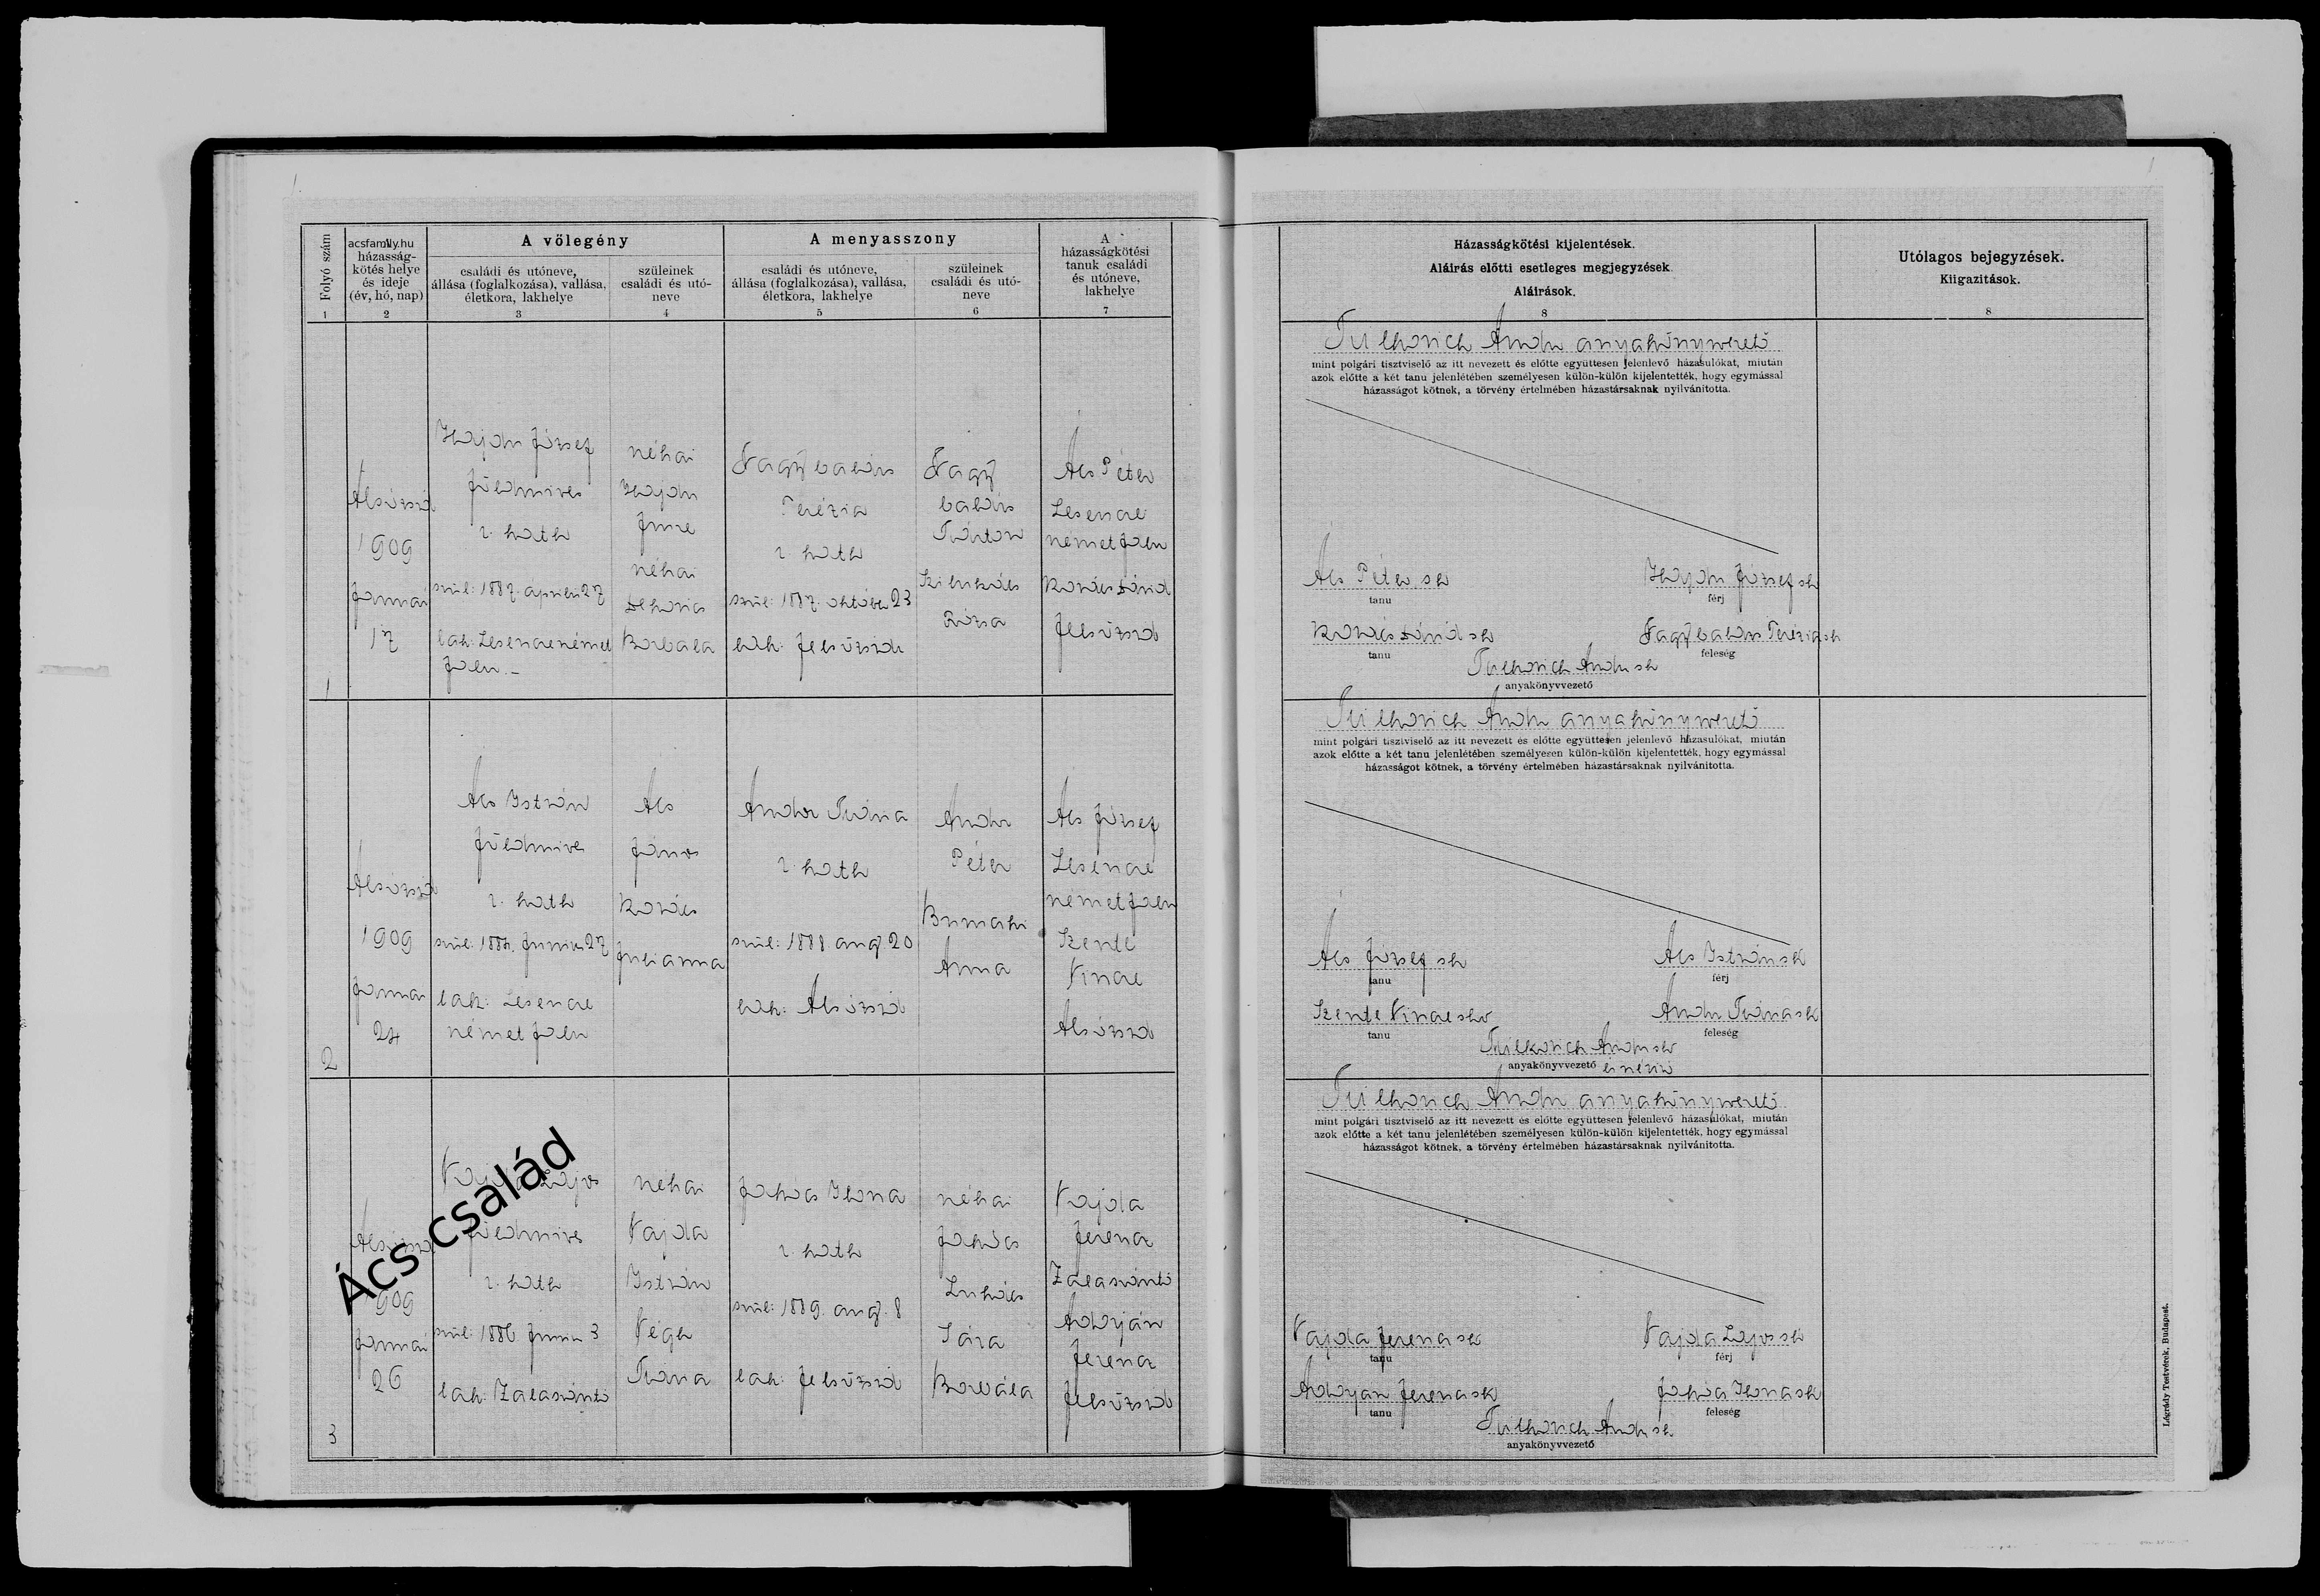 Folyó szám
1
acsfamily.hu
házasság-
kötés helye
és ideje
(év, hó, nap)
2
A vőlegény
családi és utóneve,
állása (foglalkozása), vallása,
életkora, lakhelye
3
szüleinek
családi és utó-
neve
4
A menyasszony
családi és utóneve,
állása (foglalkozása), vallása,
életkora, lakhelye
5
szüleinek
családi és utó-
neve
6
A
házasságkötési
tanuk családi
és utóneve,
lakhelye
7
1
Alsózsid
1909
január
17
Hajdu József
földmives
r. kath
szül: 1887. április 27
lak: Lesencenémet
falu.-
néhai
Hajdu
Imre
néhai
Borbála
Nagybalázs
Terézia
r. kath
szül: 1887. október 23
lak: Felsőzsid
Nagy
balázs
Márton
Rózsa
Ács Péter
Lesence
németfalu
Kovács Dávid
Felsőzsid
2
Alsózsid
1909
január
24
Ács István
földmives
r. kath
lak: Lesence
németfalu
Ács
János
Kovács
Julianna
Andor Mária
r. kath
szül: 1888 aug 20
lak: Alsózsid
Andor
Péter
Anna
Ács József
Lesence
németfalu
Szente
Vince
Alsózsid
3
Alsózsid
1909
január
26
Vajda Lajos
földmives
r. kath
szül: 1886 junius 3
lak: Zalaszántó
néhai
Vajda
István
Végh
Mária
Takács Ilona
r. kath
szül: 1889. aug. 8
lak: Felsőzsid
néhai
Takács
Lukács
Borbála
Vajda
Ferenc
Zalaszántó
Adorján
Ferenc
Felsőzsid
Ács család
Házasságkötési kijelentések.
Aláírás előtti esetleges megjegyzések
Aláírások.
8
Utólagos bejegyzések.
Kiigazítások.
8
anyakönyvvezető
mint polgári tisztviselő az itt nevezett és előtte együttesen jelenlevő házasulókat, miután
azok előtte a két tanu jelenlétében személyesen külön-külön kijelentették, hogy egymással
házasságot kötnek, a törvény értelmében házastársaknak nyilvánitotta.
Ács Péter sk
tanu
Hajdu József sk
férj
Kovács Dávid sk
tanu
Nagybalázs Terézia sk
feleség
anyakönyvvezető
anyakönyvvezető
mint polgári tisztviselő az itt nevezett és előtte együttesen jelenlevő házasulókat, miután
azok előtte a két tanu jelenlétében személyesen külön-külön kijelentették, hogy egymással
házasságot kötnek, a törvény értelmében házastársaknak nyilvánitotta.
Ács József sk
tanu
Ács István sk
férj
Szente Vince sk
tanu
Andor Mária sk
feleség
anyakönyvvezető
anyakönyvvezető
mint polgári tisztviselő az itt nevezett és előtte együttesen jelenlevő házasulókat, miután
azok előtte a két tanu jelenlétében személyesen külön-külön kijelentették, hogy egymással
házasságot kötnek, a törvény értelmében házastársaknak nyilvánitotta.
Vajda Ferenc sk
tanu
Vajda Lajos sk
férj
Adorján Ferenc sk
tanu
Takács Ilona sk
feleség
anyakönyvvezető
Légrády Testvérek, Budapest.